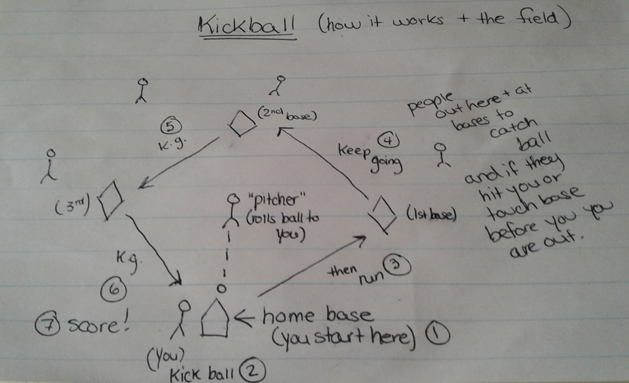 Kickball (how it works + the field)
(2nd base)
people
out here + at
bases to
catch
ball
and if they
hit you or
touch base
before you you
are out.
⑤
K.g.
④
Keep
going
(3rd)
"pitcher"
(rolls ball to
you)
(1st base)
Kg.
⑥
then
run ③
⑦ score!
home base
(you start here) ①
(You)
Kick ball ②